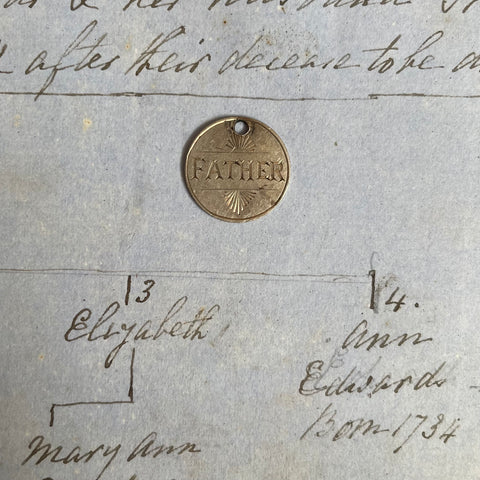 & her husband
after their decease to be
FATHER
3
4.
Elizabeth
Ann
Edwards
Born 1734
Mary Ann